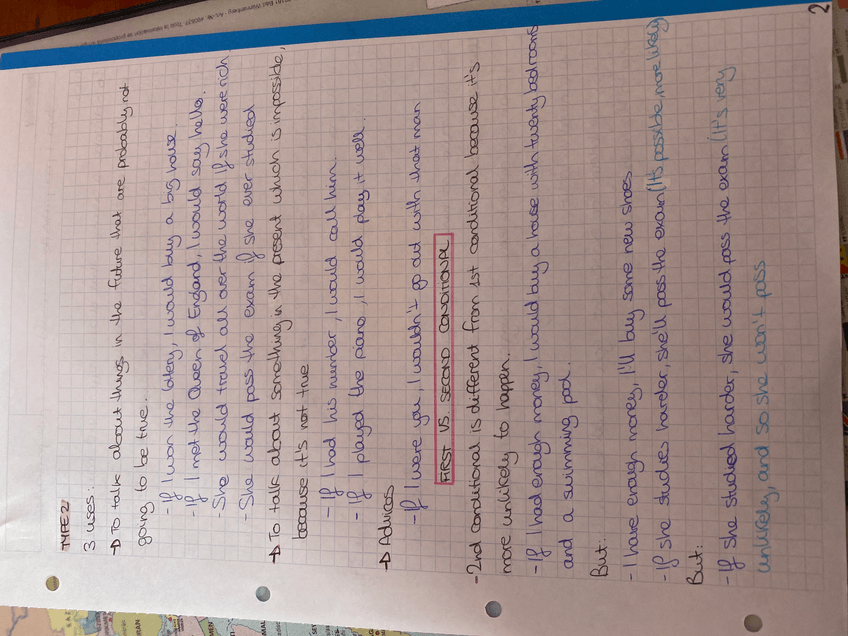 TYPE 2
3 uses:
→ To talk about things in the future that are probably not
going to be true.
- If I won the lotery, I would buy a big house.
- If I met the Queen of England, I would say hello.
- She would travel all over the world if she were rich
- She would pass the exam if she ever studied
→ To talk about something in the present which is impossible,
because it's not true
- If I had his number, I would call him.
- If I played the piano, I would play it well.
→ Advices
- If I were you, I wouldn't go out with that man
FIRST VS SECOND CONDITIONAL
- 2nd conditional is different from 1st conditional because it's
more unlikely to happen.
- If I had enough money, I would buy a house with twenty bedrooms
and a swimming pool.
But:
- I have enough money, I'll buy some new shoes
- If she studies harder, she'll pass the exam (It's possible, more likely
But:
- If she studied harder, she would pass the exam (It's very
unlikely, and so she won't pass
2